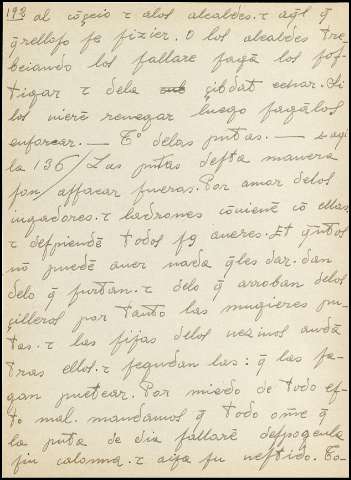 192 al cōçeio τ alos alcaldes. τ aq̄l q̄
q̄rellaſo ſe fizier. O los alcaldes tre
beiando los fallare fagā los ſoſ
tigar τ dela çibdat echar. Si
los uierē renegar luego fagālos
enforcar. — Tº delas putas. —
la 136/ Las putas deſta manera
ſon/ affacar fueras. Por amor delos
iugadores. τ ladrones cōuienē cō ellas
τ deſpiendē todos ſꝯ aueres. Et q̄ntos
nō puedē auer nada q̄les dar. dan
delo q̄ furtan. τ delo q̄ arroban delos
çilleros por tanto las mugieres pu
tas. τ las fijas delos uezinos andā
tras ellos. τ ſegudan las: q̄ las fa
gan putear. Por miedo de todo eſ
to mal. mandamos q̄ todo om̄e q̄
la puta de dia fallarē deſpogeula
ſin calonna. τ aiſa ſu ueſtido. To-